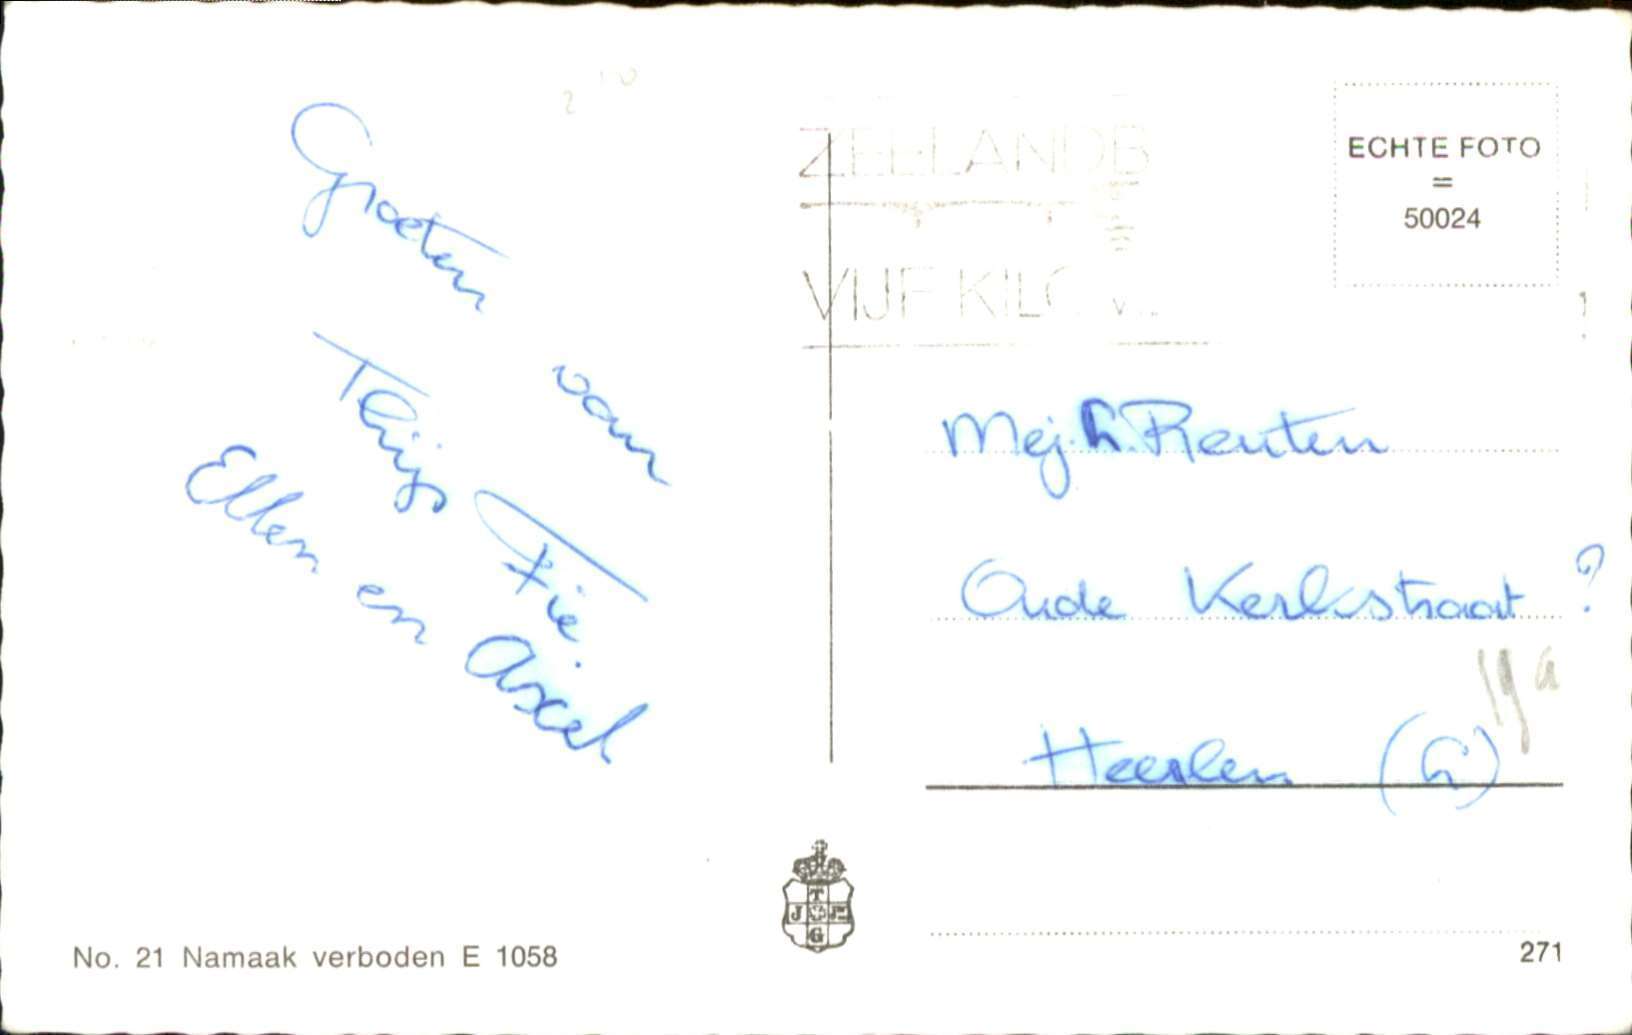 Groeten van
Thijs Fie
Ellen en Axel
ZEELANDB
VIJF KIL
ECHTE FOTO
=
50024
Mej. Reuten
Oude Kerkstraat ?
Heerlen
T
J
G
No. 21 Namaak verboden E 1058
271